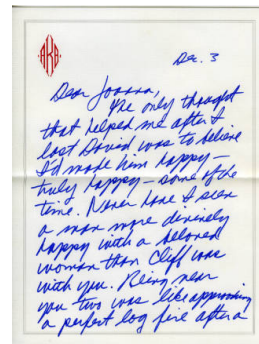 AKB
Dec. 3
Dear Joanna,
The only thought
that helped me after I
lost David was to believe
I'd made him happy —
truly happy — some of the
time. Never have I seen
a man more divinely
happy with a beloved
woman than Cliff was
with you. Being near
you two was like approaching
a perfect log fire after a